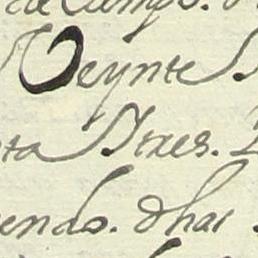 de Campo.
Veynte
ta Tres.
endo. dhas